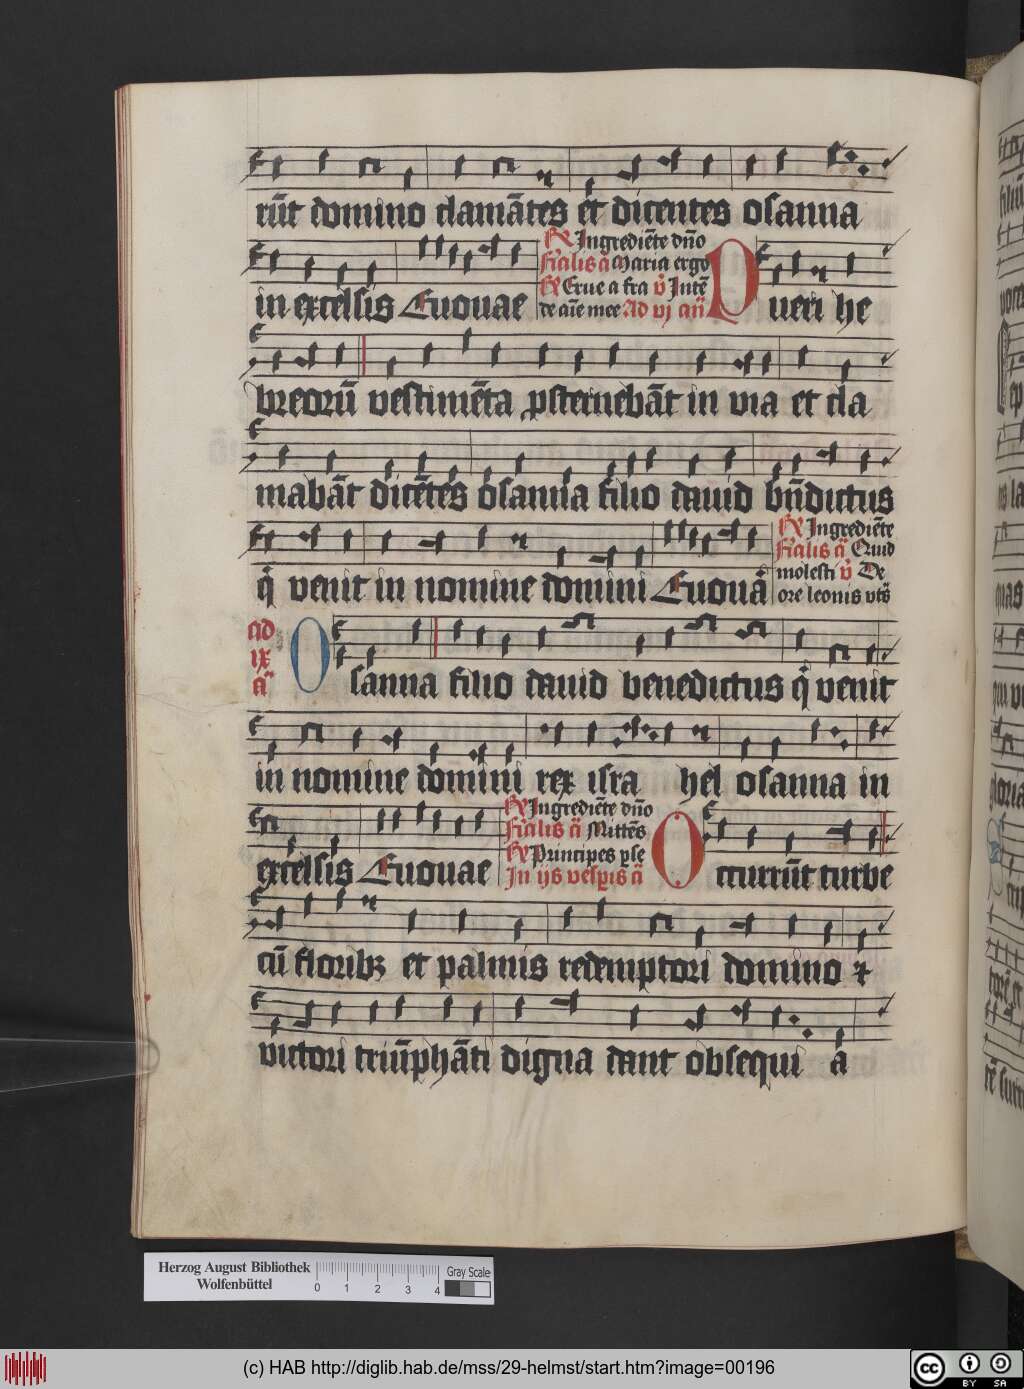 rūt domino clamātes et dicentes osanna
in excelsis Euouae
R Ingrediēte dño
f'ialis ā Maria ergo
R Erue a fra v̓ Intē
de aīe mee Ad vj añ
Pueri he
breorū vestimēta psternebāt in via et cla
mabāt dicētes osanna filio dauid bñdictus
q̓ venit in nomine domini Euouā
R Ingrediēte
f'ialis ā Quid
molesti v̓ De
ore leonis vts̄
ad
ix
ā
Osanna filio dauid benedictus q̓ venit
in nomine domini rex isra hel osanna in
excelsis Euouae
R Ingrediēte dño
f'ialis ā Mittēs
R Principes pse
In ijs vespis ā
Occurrūt turbe
cū floribꝫ et palmis redemptori domino ⁊
victori triūphāti digna dant obsequi a
Herzog August Bibliothek
Wolfenbüttel
0 1 2 3 4
Gray Scale
(c) HAB http://diglib.hab.de/mss/29-helmst/start.htm?image=00196
cc BY SA